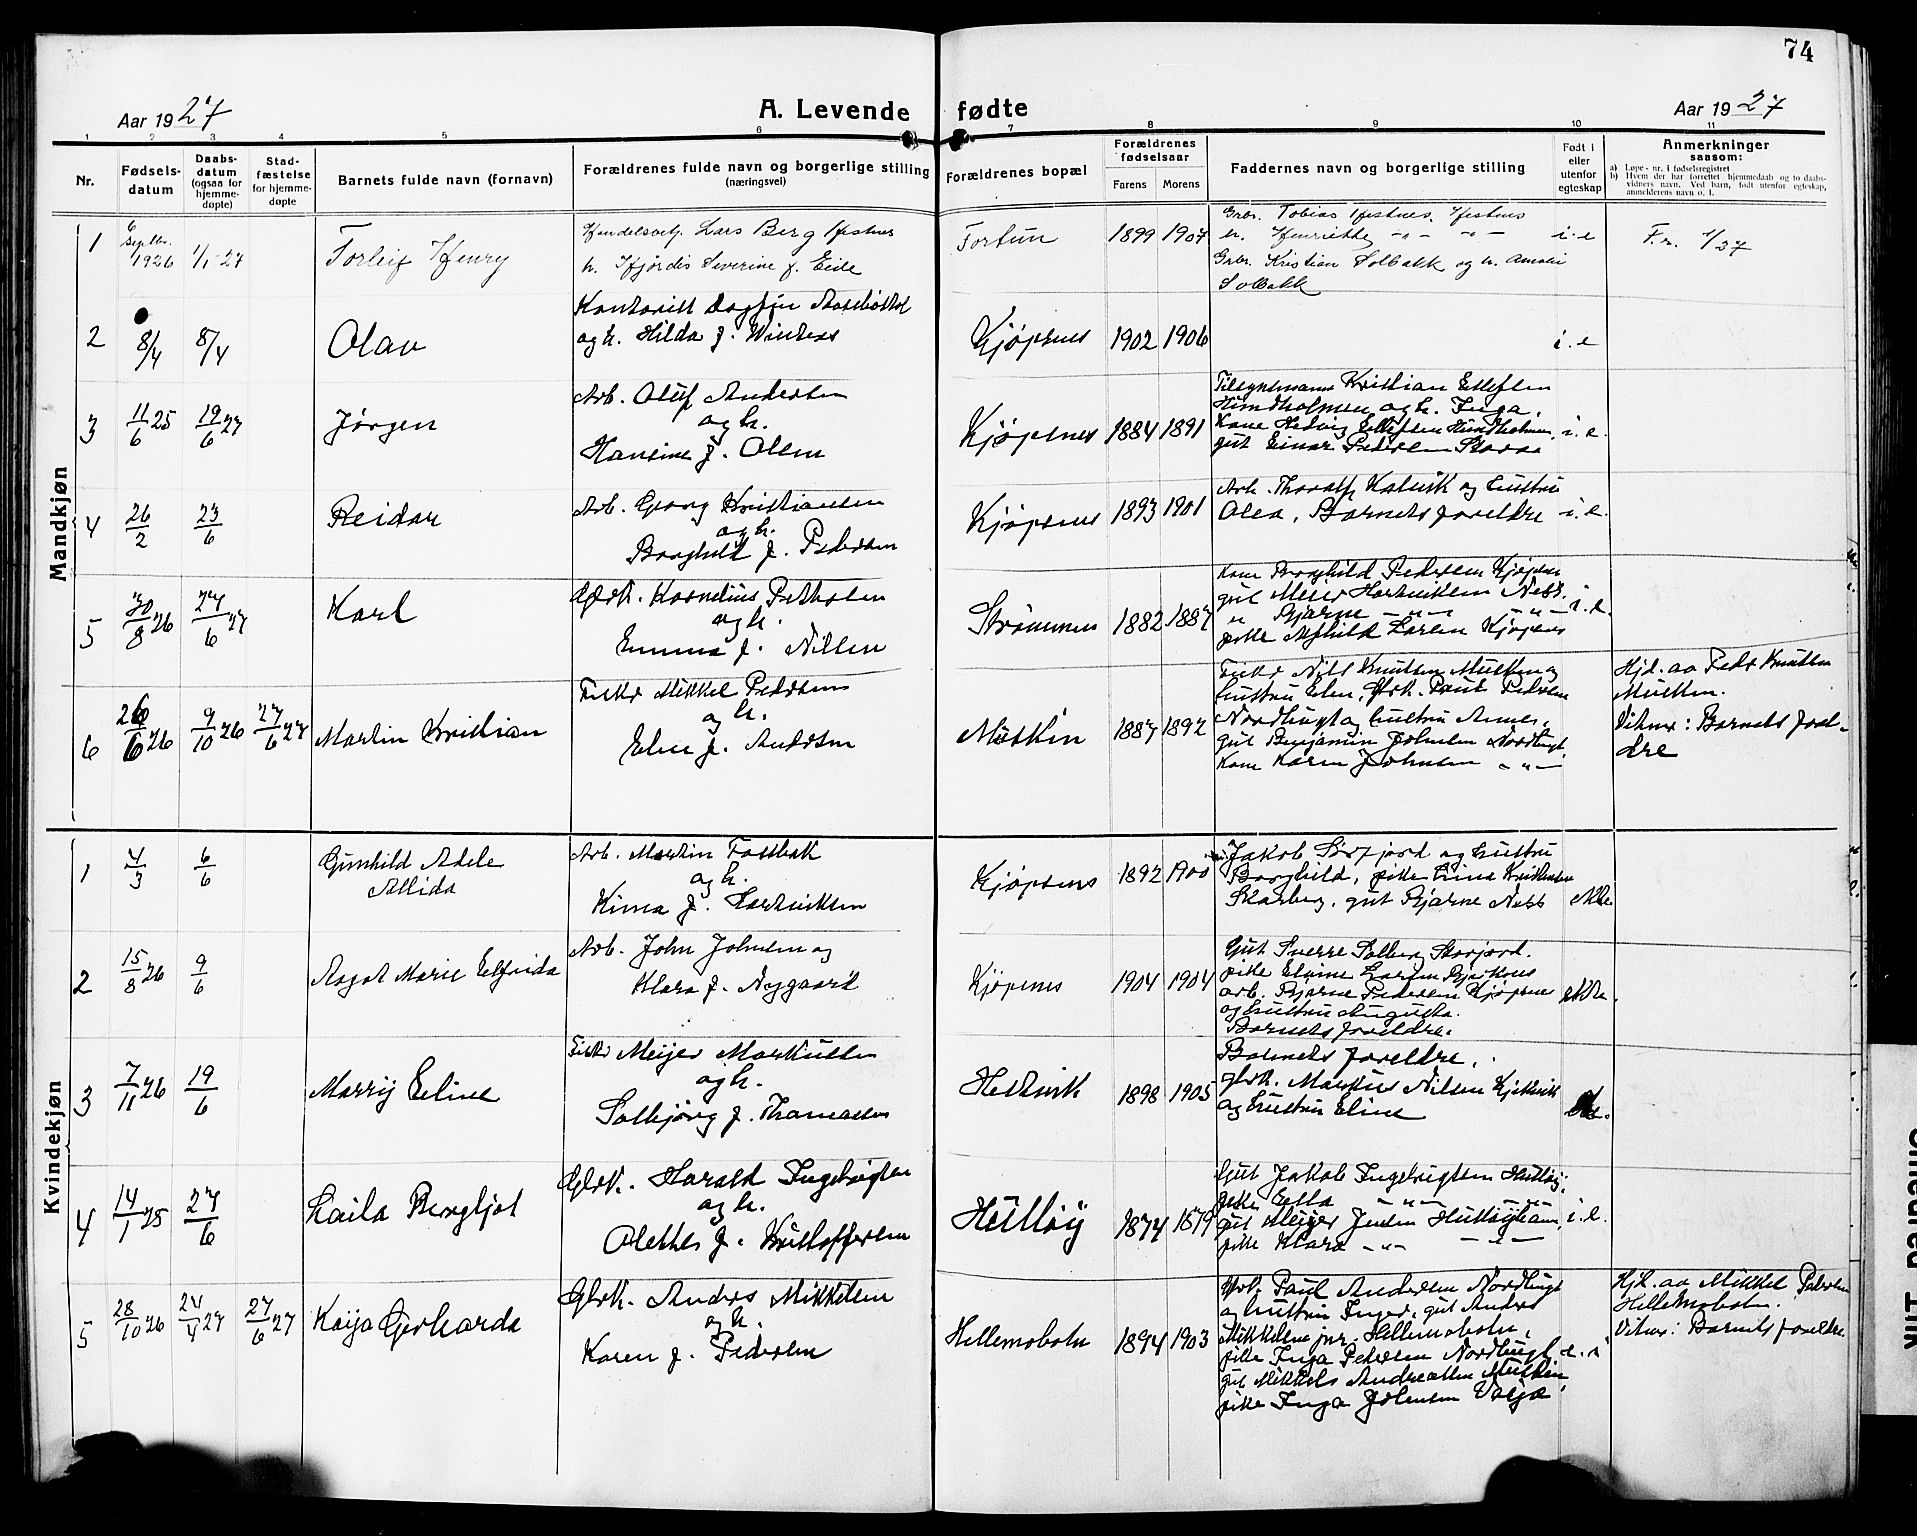 74
Aar 1927
A. Levende fødte
Aar 1927
1 2 3 4 5 6 7 8 9 10 11
Nr.
Fødsels-
datum
Daabs-
datum
(ogsaa for
hjemme-
døpte)
Stad-
fæstelse
for hjemme-
døpte
Barnets fulde navn (fornavn)
Forældrenes fulde navn og borgerlige stilling
(næringsvei)
Forældrenes bopæl
Forældrenes
fødselsaar
Farens Morens
Faddernes navn og borgerlige stilling
Født i
eller
utenfor
egteskap
Anmerkninger
saasom:
a) Løpe-nr. i fødselsregistret
b) Hvem der har forrettet hjemmedaab og to daabs-
vidners navn. Ved barn, født utenfor egteskap,
anmelderens navn o. l.
Mandkjøn
1 6 Septbr. 1926 1/1-27 Torleif Henry
Lars Berg
h. Hjørdis Severine f. Eide
Fortun 1899 1907
Grbr. Tobias
h. Henriette -"- -"-
Grbr. Kristian Solbakk og h. Amalie
Solbakk
i. e F.r. 1/27
2 8/4 8/4 Olav
Kontorist Dagfin
og h. Hilda f.
Kjøpsnes 1902 1906 i. e
3 11/6 25 19/6 27 Jørgen
Arb. Oluf Andersen
og h.
Hansine f. Olsen
Kjøpsnes 1884 1891
Tilsynsmann Kristian Ellefsen
Hundholmen og h. Inga,
Kone Hedvig Ellefsen Hundholmen,
gut Einar Pedersen
i. e.
4 26/2 23/6 Reidar
Arb. Georg Kristiansen
og h.
Borghild f. Pedersen
Kjøpsnes 1893 1901
Arb. Thoralf Kalvik og hustru
Olea, Barnets foreldre
i. e.
5 30/8 26 27/6 27 Karl
Gbrk. Kornelius
og h.
Emma f. Nilsen
Strømnes 1882 1887
Kone Borghild Pedersen Kjøpsnes
gut Meier Hartviksen Ness
" Bjarne -"- -"-
pike Larsen Kjøpsnes
i. e.
6 26/6 26 9/10 26 27/6 27 Martin Kristian
Fisker Mikkel Pedersen
og h.
Elen f. Andersen
Musken 1887 1892
Fisker Nils Knutsen Musken og
hustru Elen, Gbrk. Paul Pedersen
Nordbugt og hustru Anne,
gut Benjamin Johnsen Nordbugt,
Kone Karen Johnsen -"-
Hjd. av Peder Knutsen
Musken.
Vitner: Barnets forel-
dre
Kvindekjøn
1 4/3 6/6 Gunhild Adele
Alida
Arb. Martin Fossbak
og h.
Kima f. Hartviksen
Kjøpsnes 1892 1900
Jakob Sørfjord og hustru
Borghild, pike Lina Kristensen
Skarberg, gut Bjarne Ness
ekte
2 15/8 26 9/6 Aagot Marie Elfrida
Arb. John Johnsen og
Klara f. Nygaard
Kjøpsnes 1904 1904
Gut Sverre Solberg Storjord.
pike Elvine Larsen
arb. Bjarne Pedersen Kjøpsnes
og hustru Augusta.
Barnets foreldre.
ekte.
3 7/11 26 19/6 Marry Eline
Fisker Meijer Markussen
og h.
Solbjørg f. Thomassen
Hestvik 1898 1905
Barnets foreldre.
gbrk. Markus Nilsen
og hustru Eline
4 14/1 25 27/6 Laila Bergljot
Gbrk. Harald Ingebrigtsen
og h.
Alethes f. Kristoffersen
Hulløy 1874 1879
Gut Jakob Ingebrigtsen Hulløy,
pike Ella -"- -"-
gut Meijer Jensen Hulløyhamn,
pike Klara -"- -"-
i. e.
5 28/10 26 24/4 27 27/6 27 Kaija Gerharda
Gbrk. Anders Mikkelsen
og h.
Karen f. Pedersen
Hellemobotn 1894 1903
Gbrk. Paul Andersen Nordbugt
og hustru Inger, gut Anders
Mikkelsen jnr. Hellemobotn,
pike Inga Pedersen Nordbugt
gut Mikkels Andreassen Musken
pike Inga Johnsen
e. i
Hjd. av Mikkel Pedersen
Hellemobotn.
Vitner: Barnets foreldre